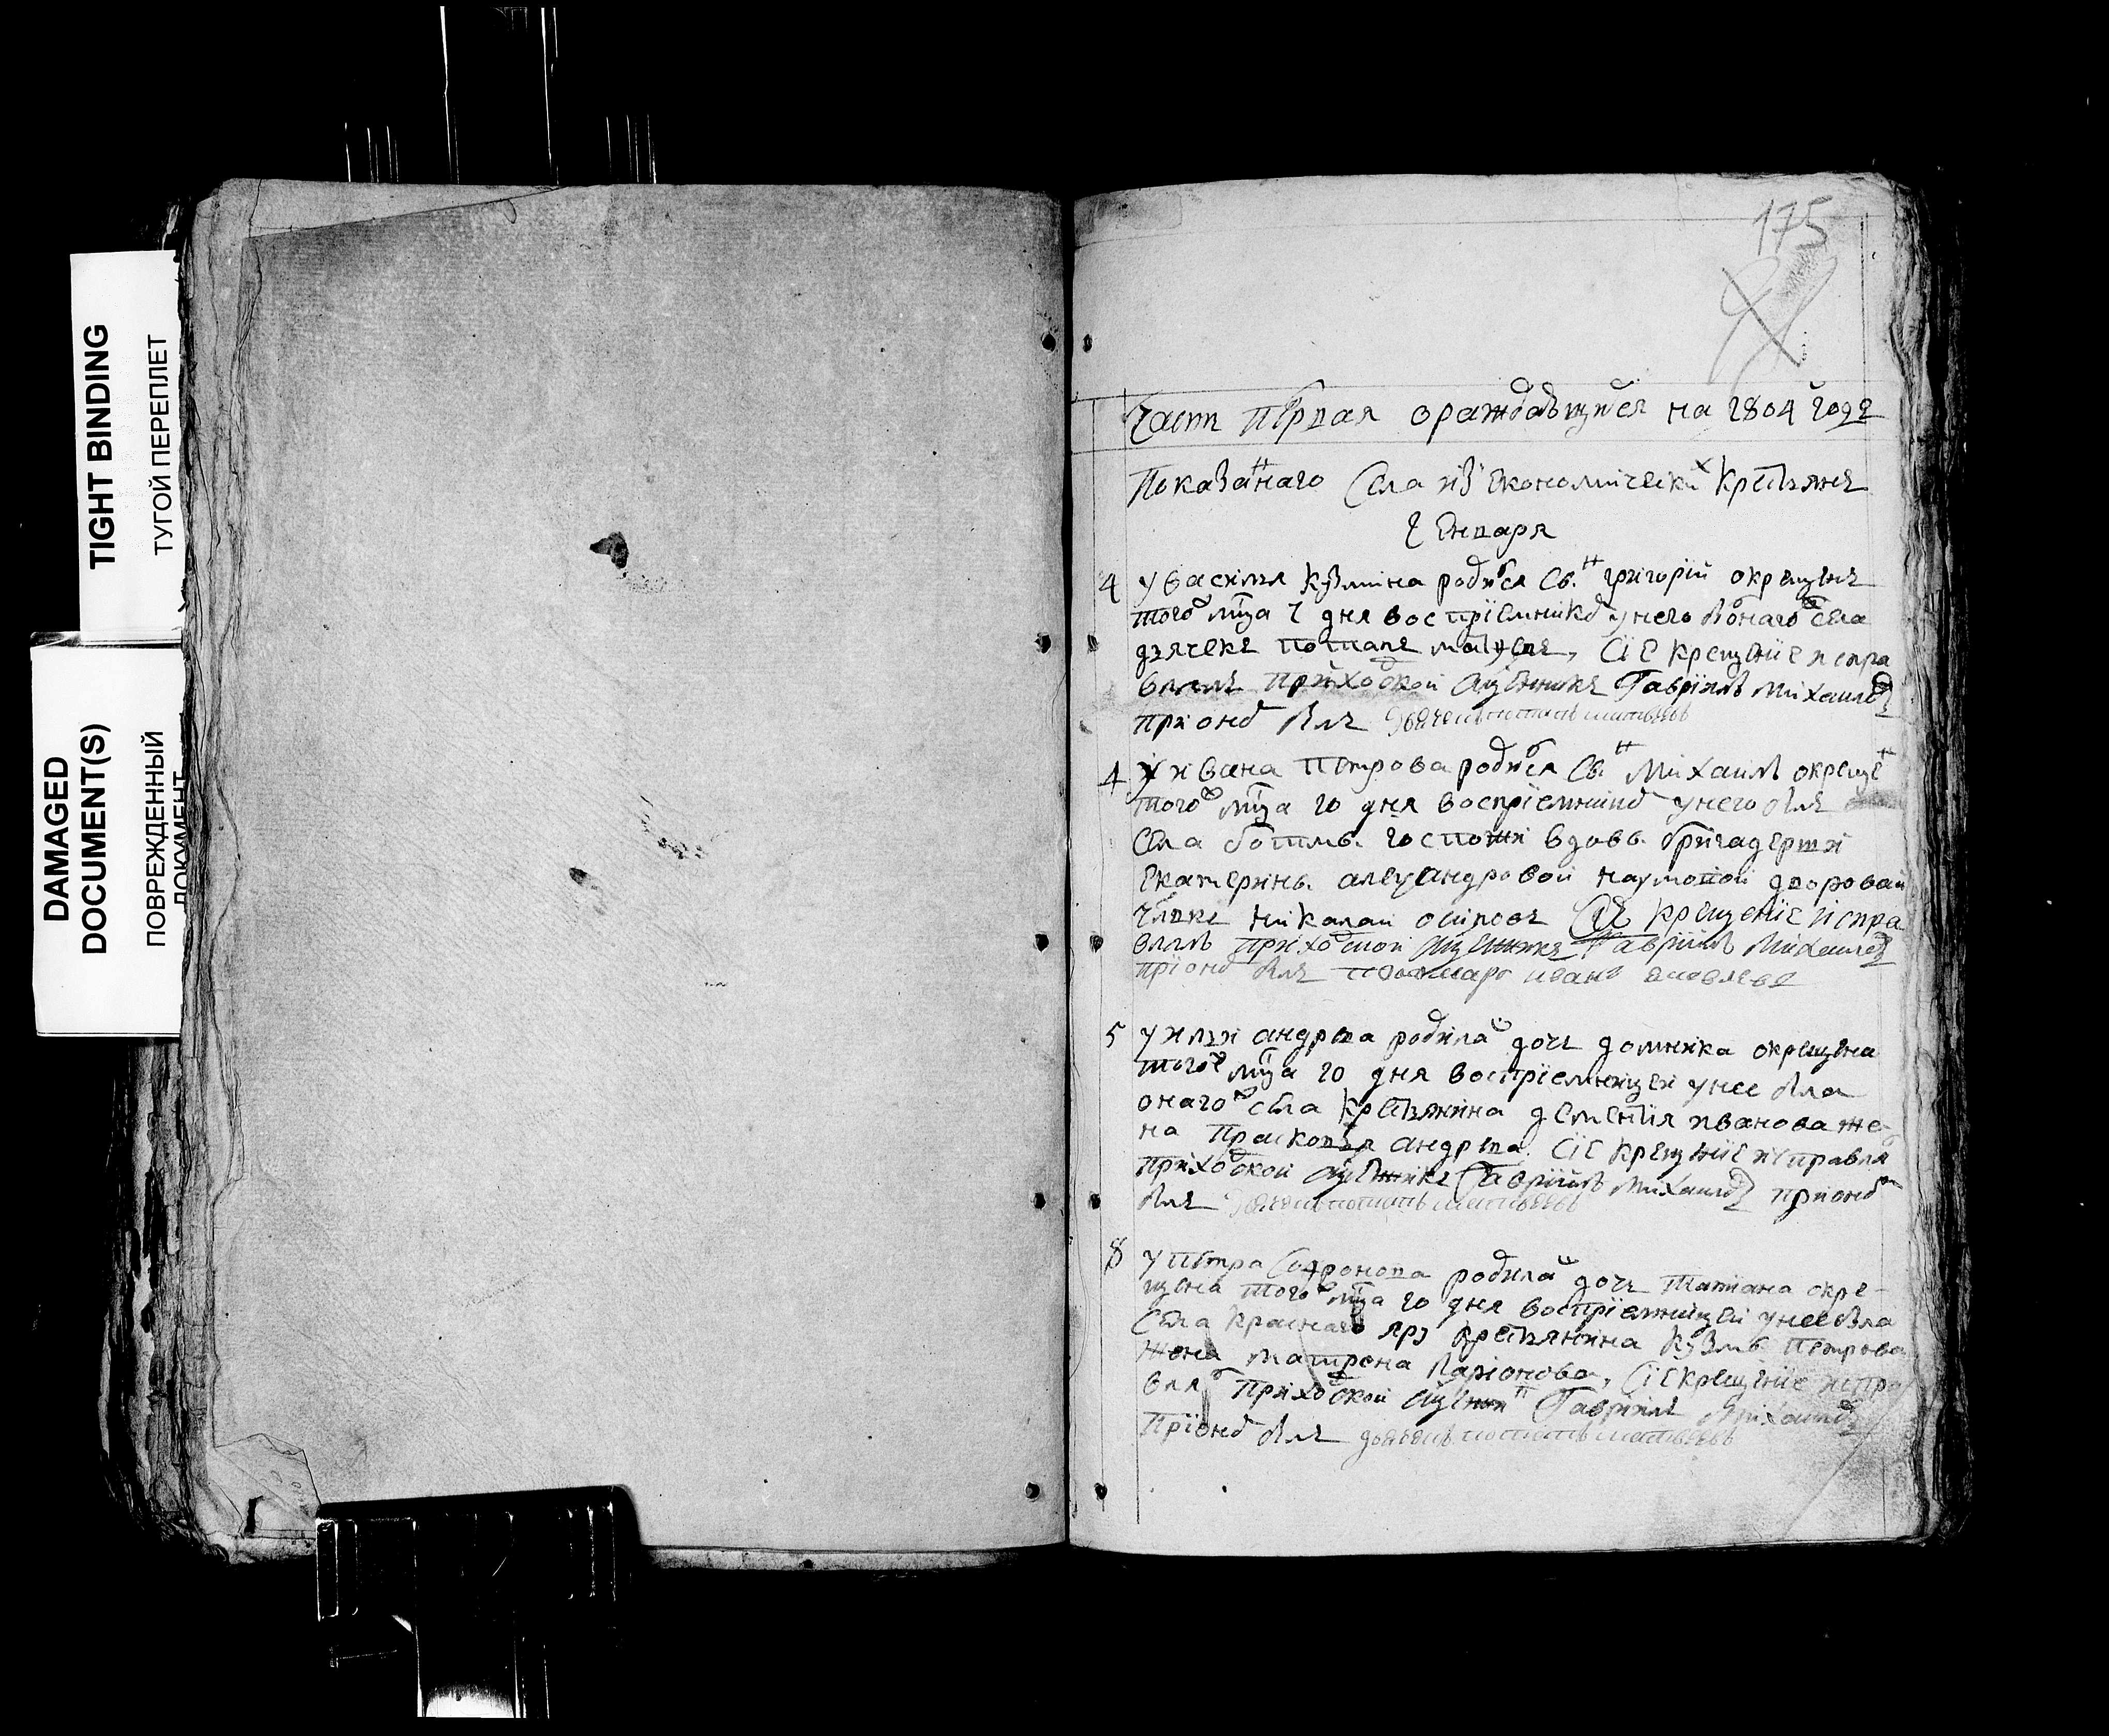 TIGHT BINDING
ТУГОЙ ПЕРЕПЛЕТ
DAMAGED
DOCUMENT(S)
ПОВРЕЖДЕННЫЙ
ДОКУМЕНТ
175
Часть первая о раждающихся на 1804 годъ
Показаннаго села из экономическихъ крестьянъ
Генваря
4 у василья кузмина родился сынъ григорий окрещенъ
того мца 7 дня восприемникомъ у него былъ онаго села
дьячекъ потапъ матвеевъ, сие крещение испра
влялъ приходской священникъ Гавриилъ Михаиловъ
при ономъ былъ дьячекъ потапъ матвеевъ
4 у ивана петрова родился сынъ Михаилъ окрещенъ
того мца 10 дня восприемникомъ у него былъ
села госпожи вдовы бригадерши
екатерины александровой наумовой дворовой
члвкъ николаи осиповъ сие крещение испра
влялъ приходской священникъ Гавриилъ Михаиловъ
при ономъ былъ пономарь иванъ яковлевъ
5 у ильи андреева родилась дочь домника окрещена
того мца 10 дня восприемницей у нее была
онаго села крестьянина дементия иванова же-
на прасковья андреева. сие крещение исправлялъ
приходской священникъ Гавриилъ Михаиловъ при ономъ
былъ дьячекъ потапъ матвеевъ
8 у петра софронова родилась дочь татиана окре-
щена того мца 10 дня восприемницей у нее была
села краснаго яру крестьянина кузмы петрова
жена матрона ларионова, сие крещение испра
влялъ приходской священникъ Гавриилъ Михаиловъ
при ономъ былъ дьячекъ потапъ матвеевъ